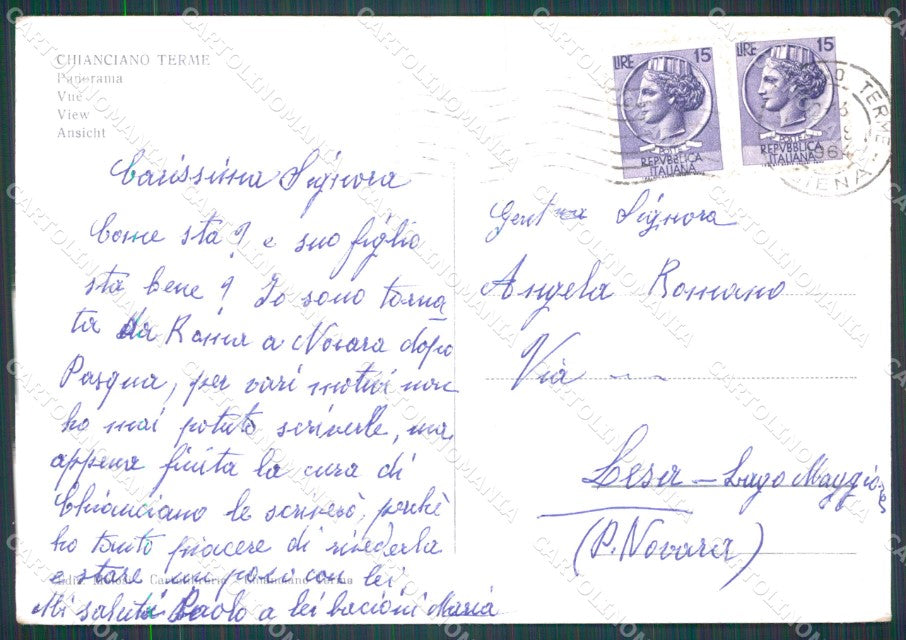 CHIANCIANO TERME
Panorama
Vue
View
Ansicht
LIRE 15
REPVBBLICA
ITALIANA
LIRE 15
POSTE
REPVBBLICA
ITALIANA
TERME
SIENA
Carissima Signora
Come sta? e suo figlio
sta bene? Io sono torna
ta da Roma a Novara dopo
Pasqua, per vari motivi non
ho mai potuto scriverle, ma
appena finita la cura di
Chianciano le scriverò, perchè
ho tanto piacere di rivederla
e stare un poco con lei
Mi saluti Paolo a lei bacioni Maria
Gent ma Signora
Angela Romano
Via
Lesa - Lago Maggiore
(P. Novara)
Chianciano Terme
CARTOLINOMANIA